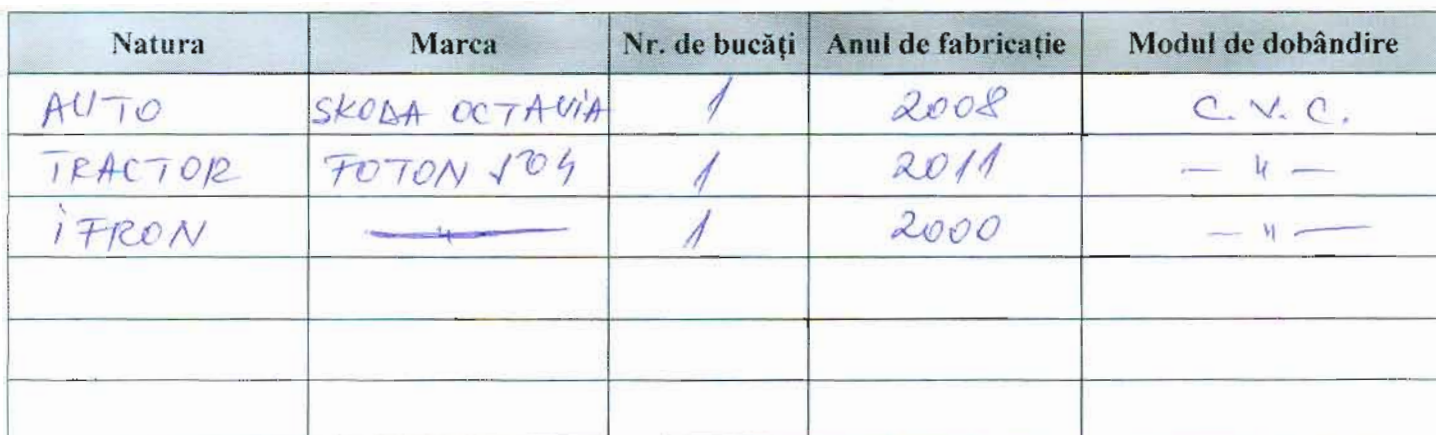 Natura Marca Nr. de bucăți Anul de fabricație Modul de dobândire
AUTO SKODA OCTAVIA 1 2008 C.V.C.
TRACTOR FOTON 504 1 2011 — " —
iFRON — 1 2000 — " —